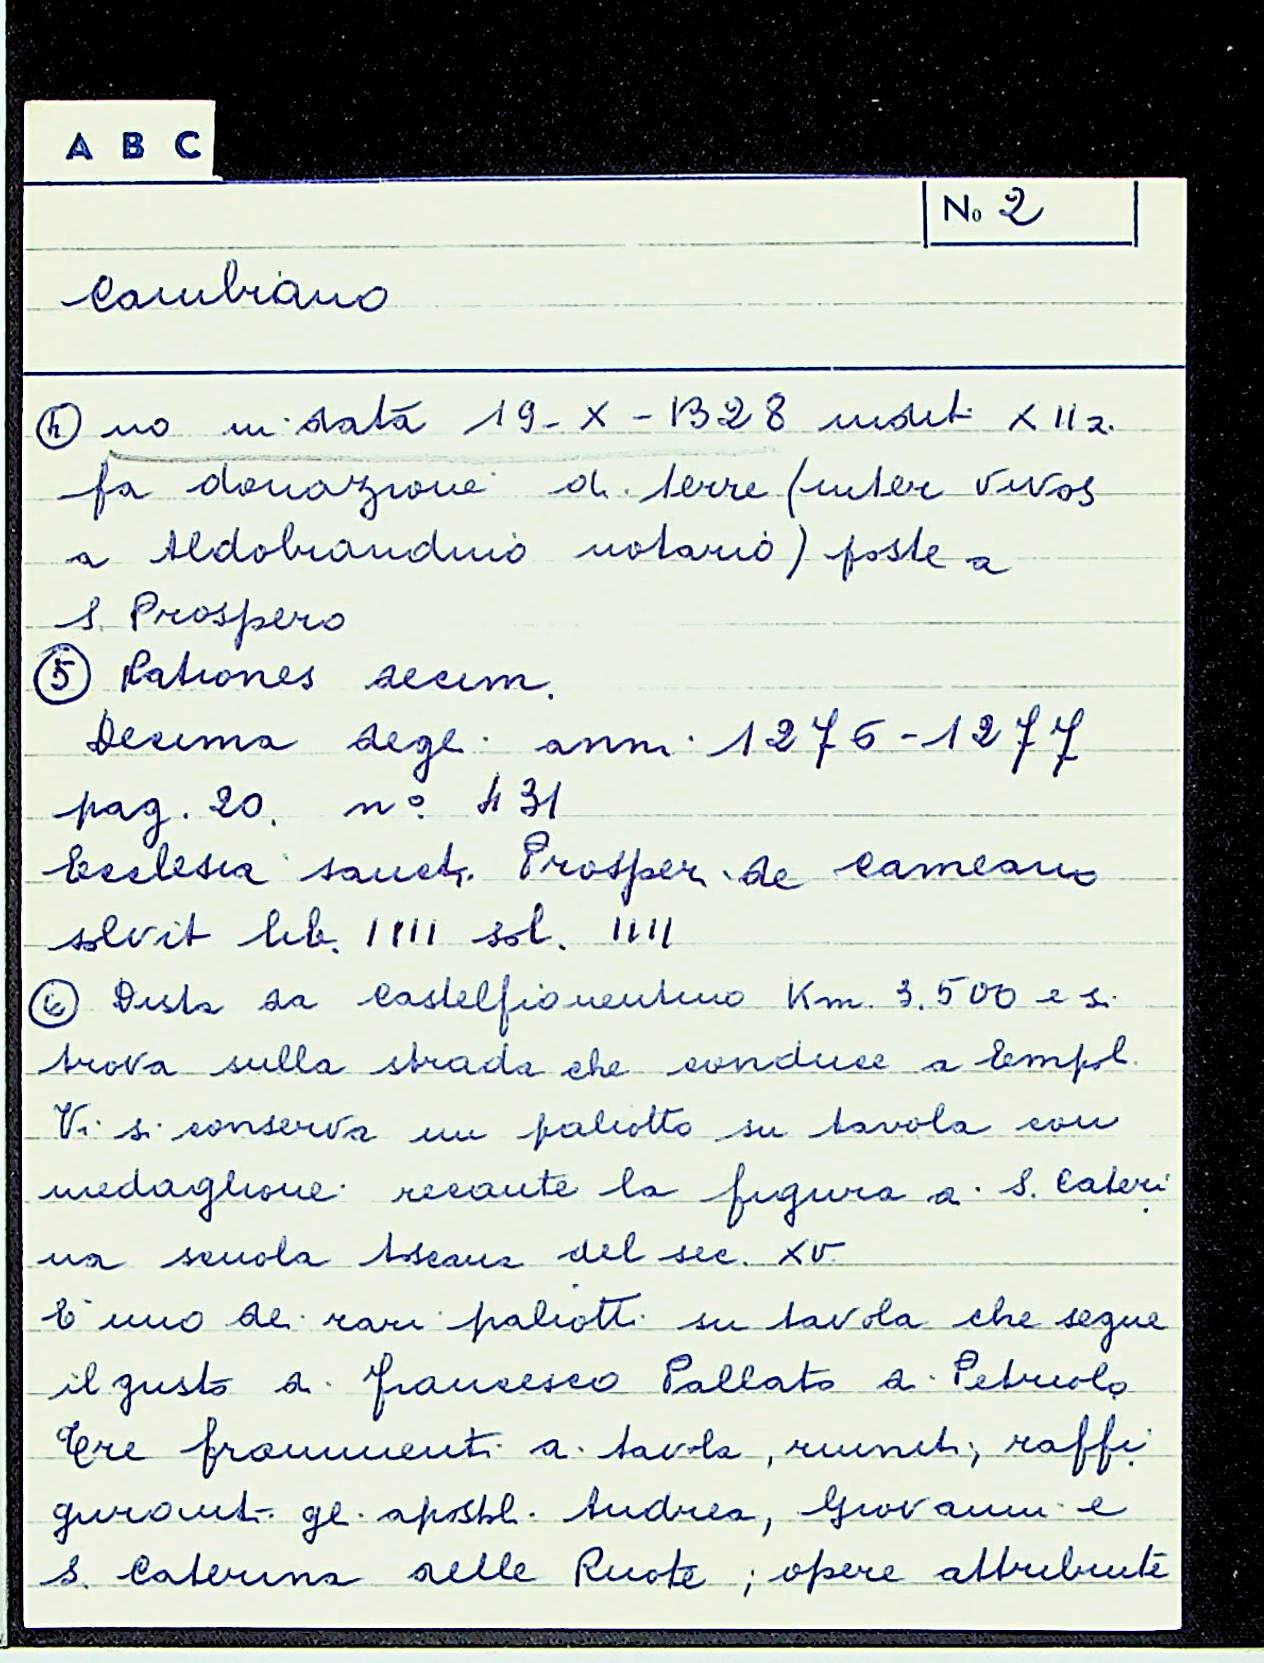 A B C
No 2
Cambiano
④ no in data 19-X-1328 indit XIIa.
fa donazione di terre (inter vivos
a Aldobrandino notario) poste a
S. Prospero
⑤ Rationes decim.
Decima degli anni 1276-1277
pag. 20. n° 431
Ecclesia sancti Prosperi de Cameano
solvit lib. IIII sol. IIII
⑥ Dista da Castelfiorentino Km. 3.500 e si
trova sulla strada che conduce a Empoli
Vi si conserva un paliotto su tavola con
medaglione recante la figura di S. Cateri
na scuola toscana del sec. XV
E' uno dei rari paliotti su tavola che segue
il gusto di Francesco Pallato di Petruolo
Tre frammenti di tavola, riuniti, raffi
guranti gli apostoli Andrea, Giovanni e
S. Caterina delle Ruote; opere attribuite